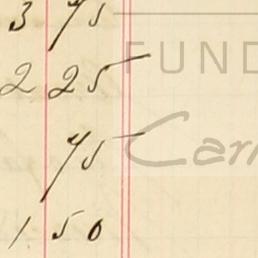 3 75
FUND
2 25
75
1 50